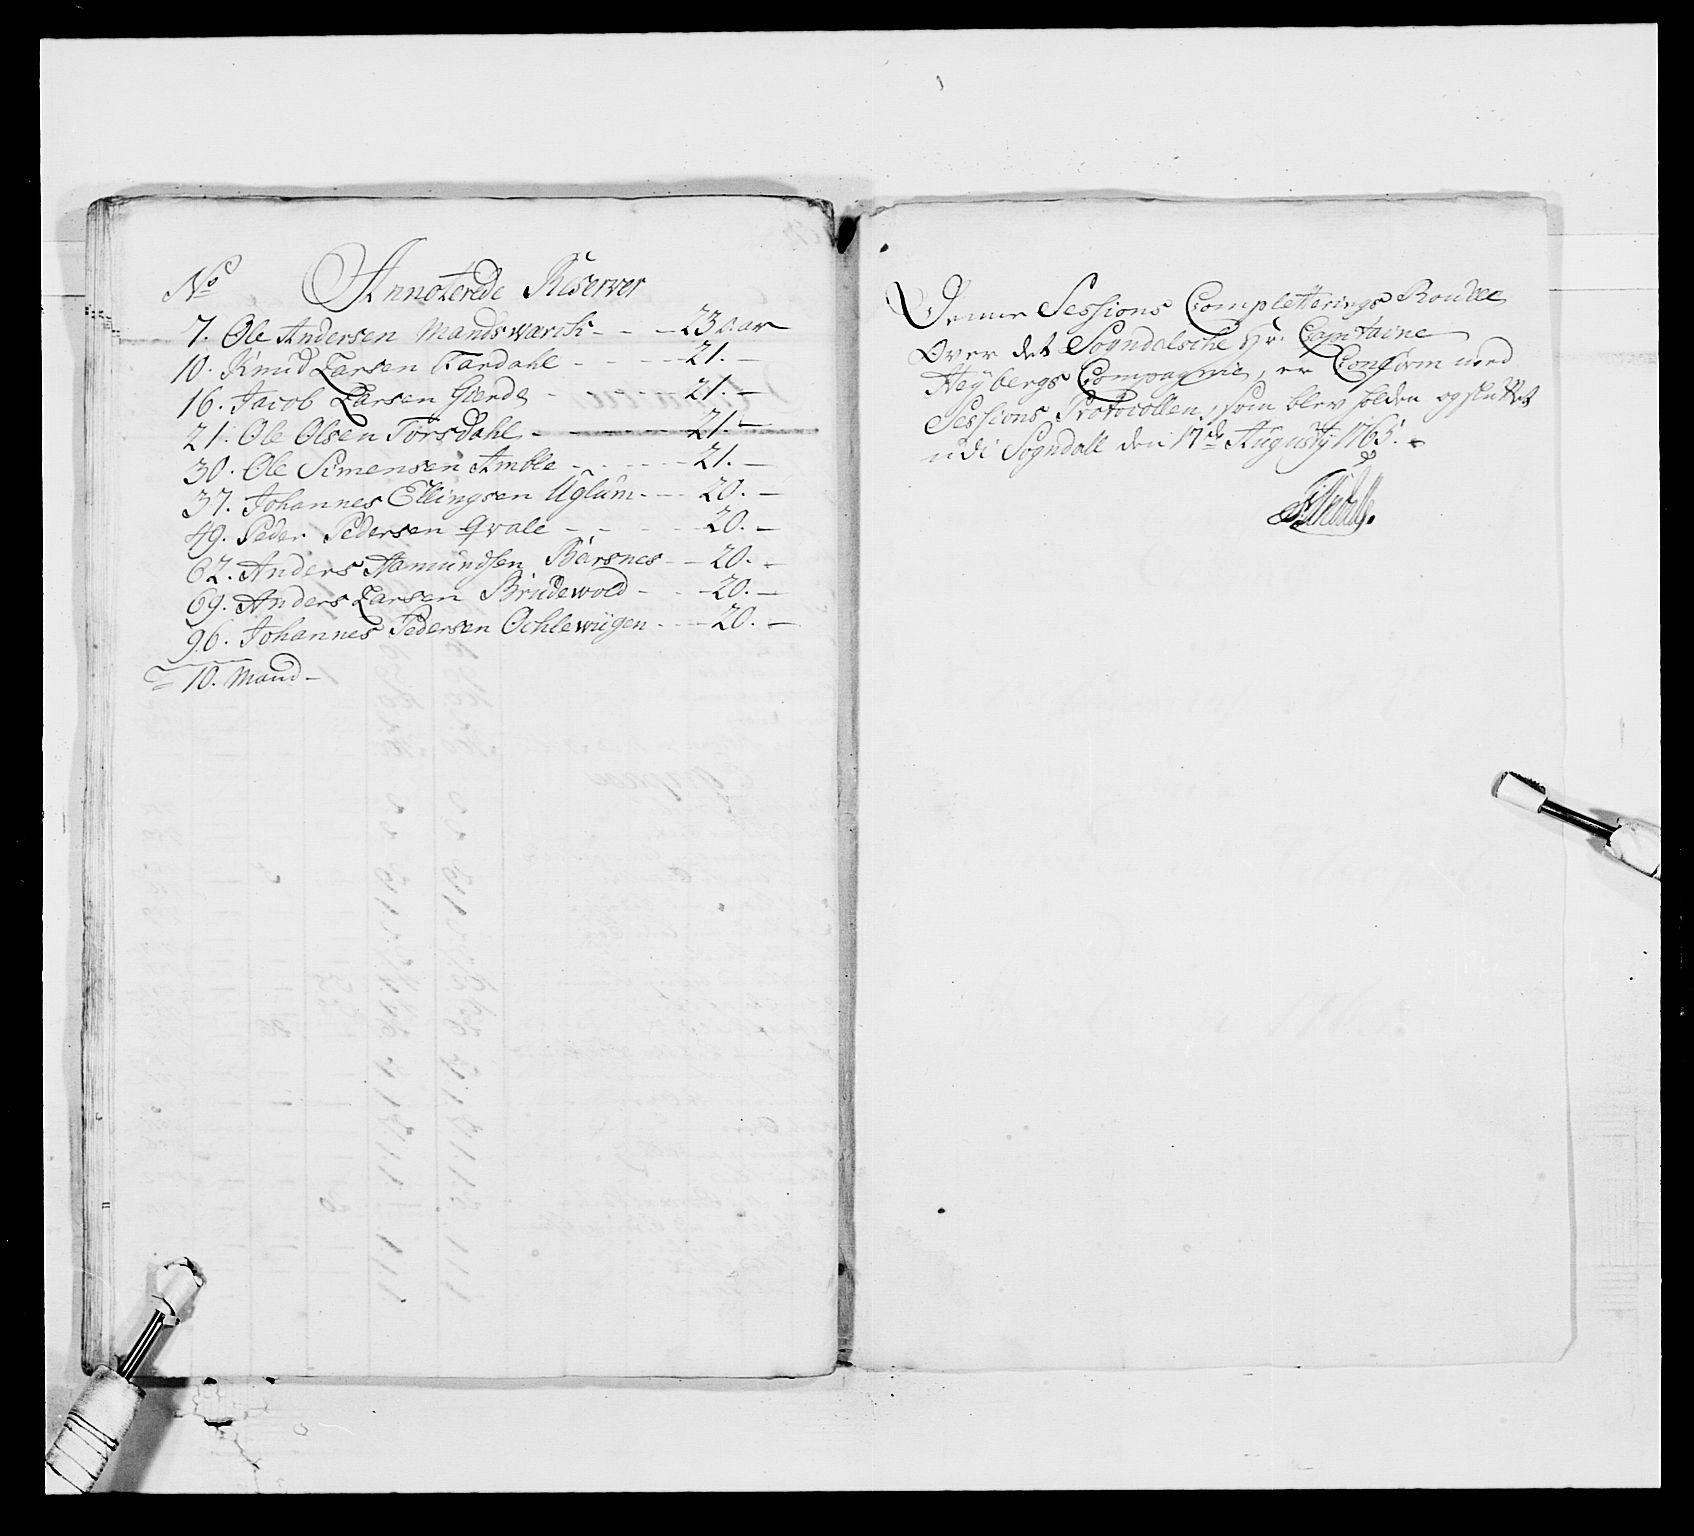 No Annoterede Reserver
7. Ole Andersen Mandswarck - - - 23 aar
10. Knud Larsen Fardahl - - - - 21. -
16. Jacob Larsen Gierde - - - 21. -
21. Ole Olsen Torsdahl - - - - 21. -
30. Ole Simensen Amble - - - - 21. -
37. Johannes Ellingsen Uglum - - - 20. -
49. Peder Pedersen Qvale - - - - 20. -
62. Anders Aamundsen Barsnes - - 20. -
69. Anders Larsen Brudewold - - - 20. -
96. Johannes Pedersen Ochlewügen - - - 20. -
10. Mand -
Denne Sessions Completterings Roulle
Over det Sogndalsche Hr. Captaine
Heÿbergs Compagnie, er Conform med
Sessions Protocollen, som blev holden og sluttet
udi Sogndall den 17de Augustÿ 1763.